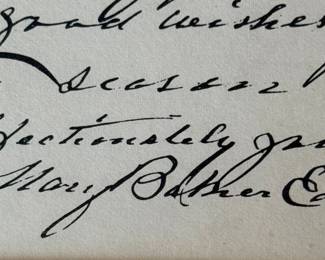 good wishes
season
fectionately you
Mary Baker Ed